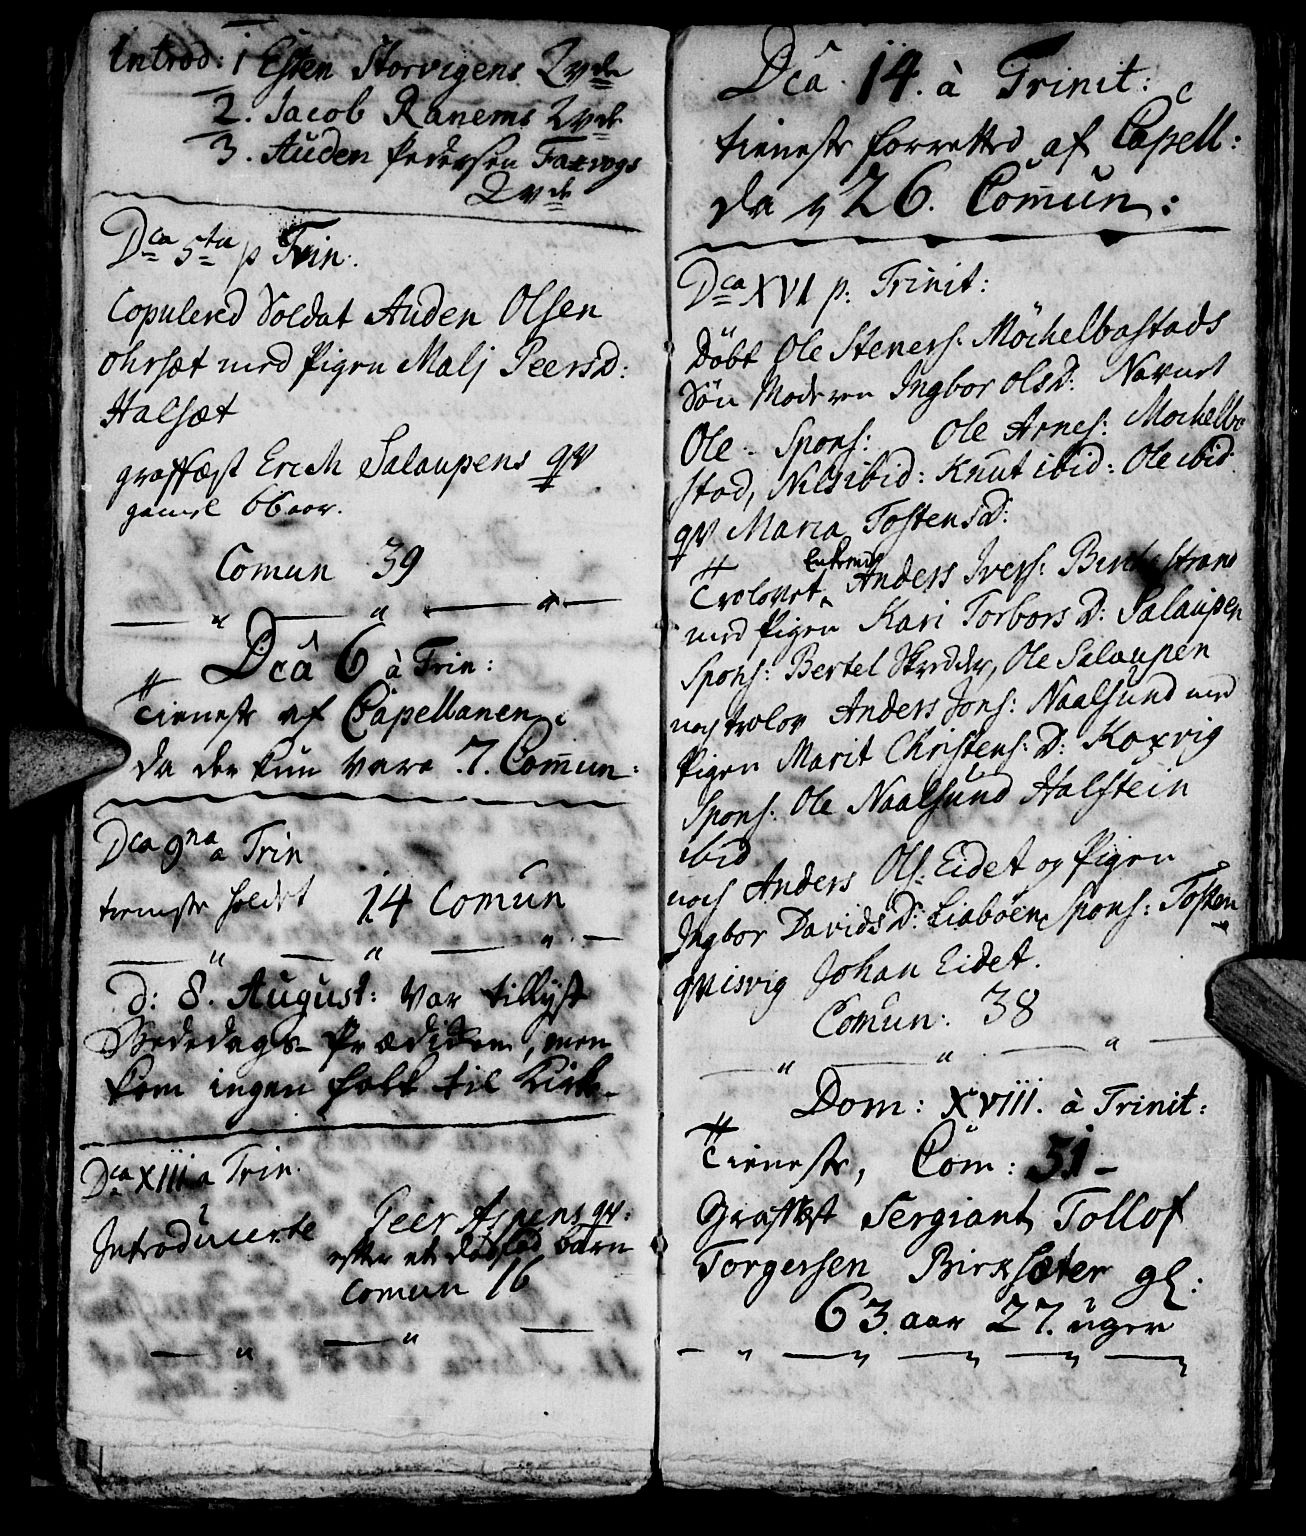 Introd: 1 Esten Storvigens Qvde
2. Jacob Ranems Qvde
3. Auden Pedersen Farvogs
Qvde
Dca 5ta p Trin.
Copulered Soldat Auden Olsen
Ohrsæt med Pigen Malj Peersd:
Halsæt
graffæst Erich Salaupens qv
gamel 66 aar.
Comun 39
Dca 6 à Trin:
Tieneste af Capellanen
da der kun vare 7. Comun:
Dca 9na a Trin
tieneste holdet 14 Comun
d: 8. August: var tillyst
Bededags-Prædiken, men
kom ingen folk til Kirke.
Dca XIII a Trin.
Introducerte Peer Aspens qv:
efter et dødfød barn
Comun 16
Dca 14. à Trinit:
tieneste forretted af Capell:
da 26. Comun:
Dca XVI p. Trinit:
Døbt Ole Steners: Möchelbostads
Søn Moderen Ingbor OlsD: Navnet
Ole. Spons: Ole Arnes: Mochelbo
stad, Nils ibid: Knut ibid: Ole ibid:
qv Maria TostensD:
Trolovet Enkemd Anders Ivers: strand
med Pigen Kari TorborsD: Salaupen
Spons: Bertel Skreder, Ole Salaupen
noch trolov Anders Jons: Naalsund med
Pigen Marit Christens:D: Koxvig
Spons: Ole Naalsund Halstein
ibid
noch Anders Ols: Eidet og Pigen
Ingbor DavidsD: Liabøen Spons: Tosten
qvisvig Johan Eidet.
Comun: 38
Dom: XVIII. à Trinit:
Tieneste, Com: 31-
Graffæst Sergiant Tollof
Torgersen Birxsæter gl:
63. aar 27. uger